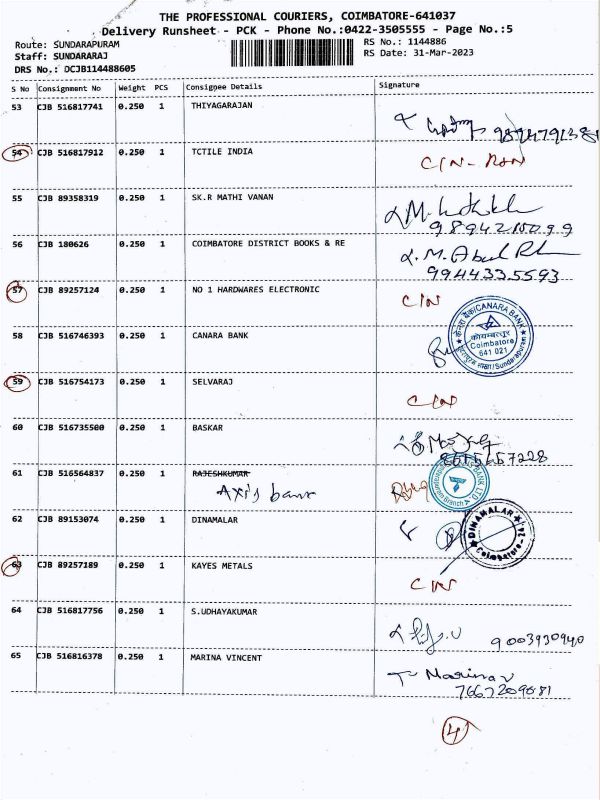 THE PROFESSIONAL COURIERS, COIMBATORE-641037
Delivery Runsheet - PCK - Phone No.:0422-3505555 - Page No.:5
Route: SUNDARAPURAM RS No.: 1144886
Staff: SUNDARARAJ RS Date: 31-Mar-2023
DRS No.: DCJB114488605
S No Consignment No Weight PCS Consignee Details Signature
53 CJB 516817741 0.250 1 THIYAGARAJAN
54 CJB 516817912 0.250 1 TCTILE INDIA
C/N-
55 CJB 89358319 0.250 1 SK.R MATHI VANAN
9894210099
56 CJB 180626 0.250 1 COIMBATORE DISTRICT BOOKS & RE
M. Abul
9944335593
57 CJB 89257124 0.250 1 NO 1 HARDWARES ELECTRONIC
C/N
58 CJB 516746393 0.250 1 CANARA BANK
केनरा बैंक/CANARA BANK
कोयम्बत्तूर
Coimbatore
641 021
शाखा/Sundarapuram
59 CJB 516754173 0.250 1 SELVARAJ
C/N
60 CJB 516735500 0.250 1 BASKAR
61 CJB 516564837 0.250 1 RAJESHKUMAR
Axis bank
AXIS BANK LTD
Branch
62 CJB 89153074 0.250 1 DINAMALAR
DINAMALAR
Coimbatore-24
63 CJB 89257189 0.250 1 KAYES METALS
C/N
64 CJB 516817756 0.250 1 S.UDHAYAKUMAR
9003930940
65 CJB 516816378 0.250 1 MARINA VINCENT
Marina V
7667209081
4